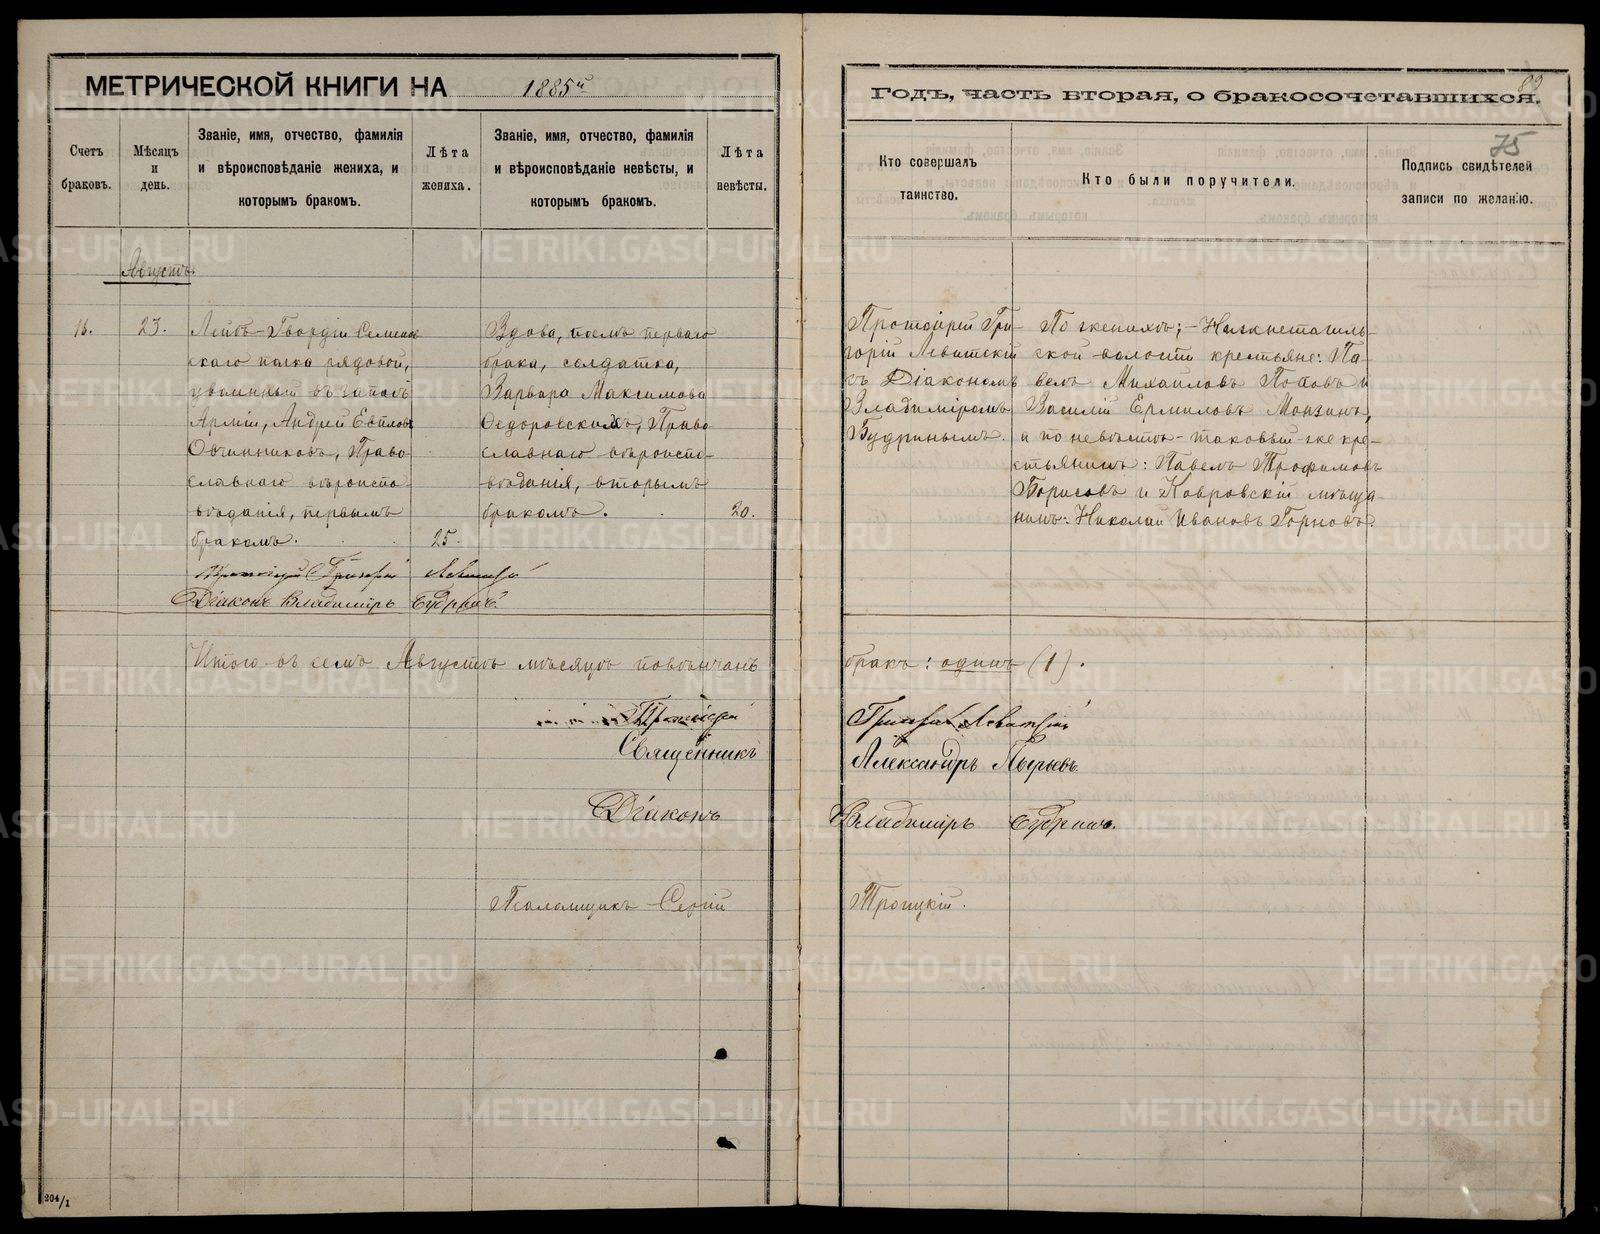 МЕТРИЧЕСКОЙ КНИГИ НА 1885й
Годъ, часть вторая, о бракосочетавшихся.
75
Счетъ браковъ.
Мѣсяцъ и день.
Званіе, имя, отчество, фамилія и вѣроисповѣданіе жениха, и которымъ бракомъ.
Лѣта жениха.
Званіе, имя, отчество, фамилія и вѣроисповѣданіе невѣсты, и которымъ бракомъ.
Лѣта невѣсты.
Кто совершалъ таинство.
Кто были поручители.
Подпись свидѣтелей записи по желанію.
Августъ.
23.
Лейбъ-Гвардіи Семенов
скаго полка рядовой,
уволенный въ запасъ
Арміи, Андрей
Овчинниковъ, Право
славнаго вѣроиспо
вѣданія, первымъ
бракомъ.
25.
Вдова, послѣ перваго
брака, солдатка,
Варвара Максимова
Ѳедоровскихъ, Право
славнаго вѣроиспо-
вѣданія, вторымъ
бракомъ.
20.
Протоіерей Гри-
горій Левитскій
съ Діакономъ
Владиміромъ
Будринымъ.
По женихѣ; - Нижнетагиль-
ской волости крестьяне: Па-
велъ Михайловъ Поповъ и
Василій Ермиловъ
а по невѣстѣ - таковый-же кре-
стьянинъ: Павелъ Трофимовъ
Борисовъ и Ковровскій мѣща-
нинъ: Николай Ивановъ Горновъ.
Протоіерей Григорій Левитскій
Діаконъ Владиміръ Будринъ.
Итого въ семъ Августѣ мѣсяцѣ повѣнчанъ бракъ: одинъ (1).
Протоіерей Григорій Левитскій
Священникъ Александръ
Діаконъ Владиміръ Будринъ.
Псаломщикъ Сергій Троицкій.
204/1
METRIKI.GASO-URAL.RU